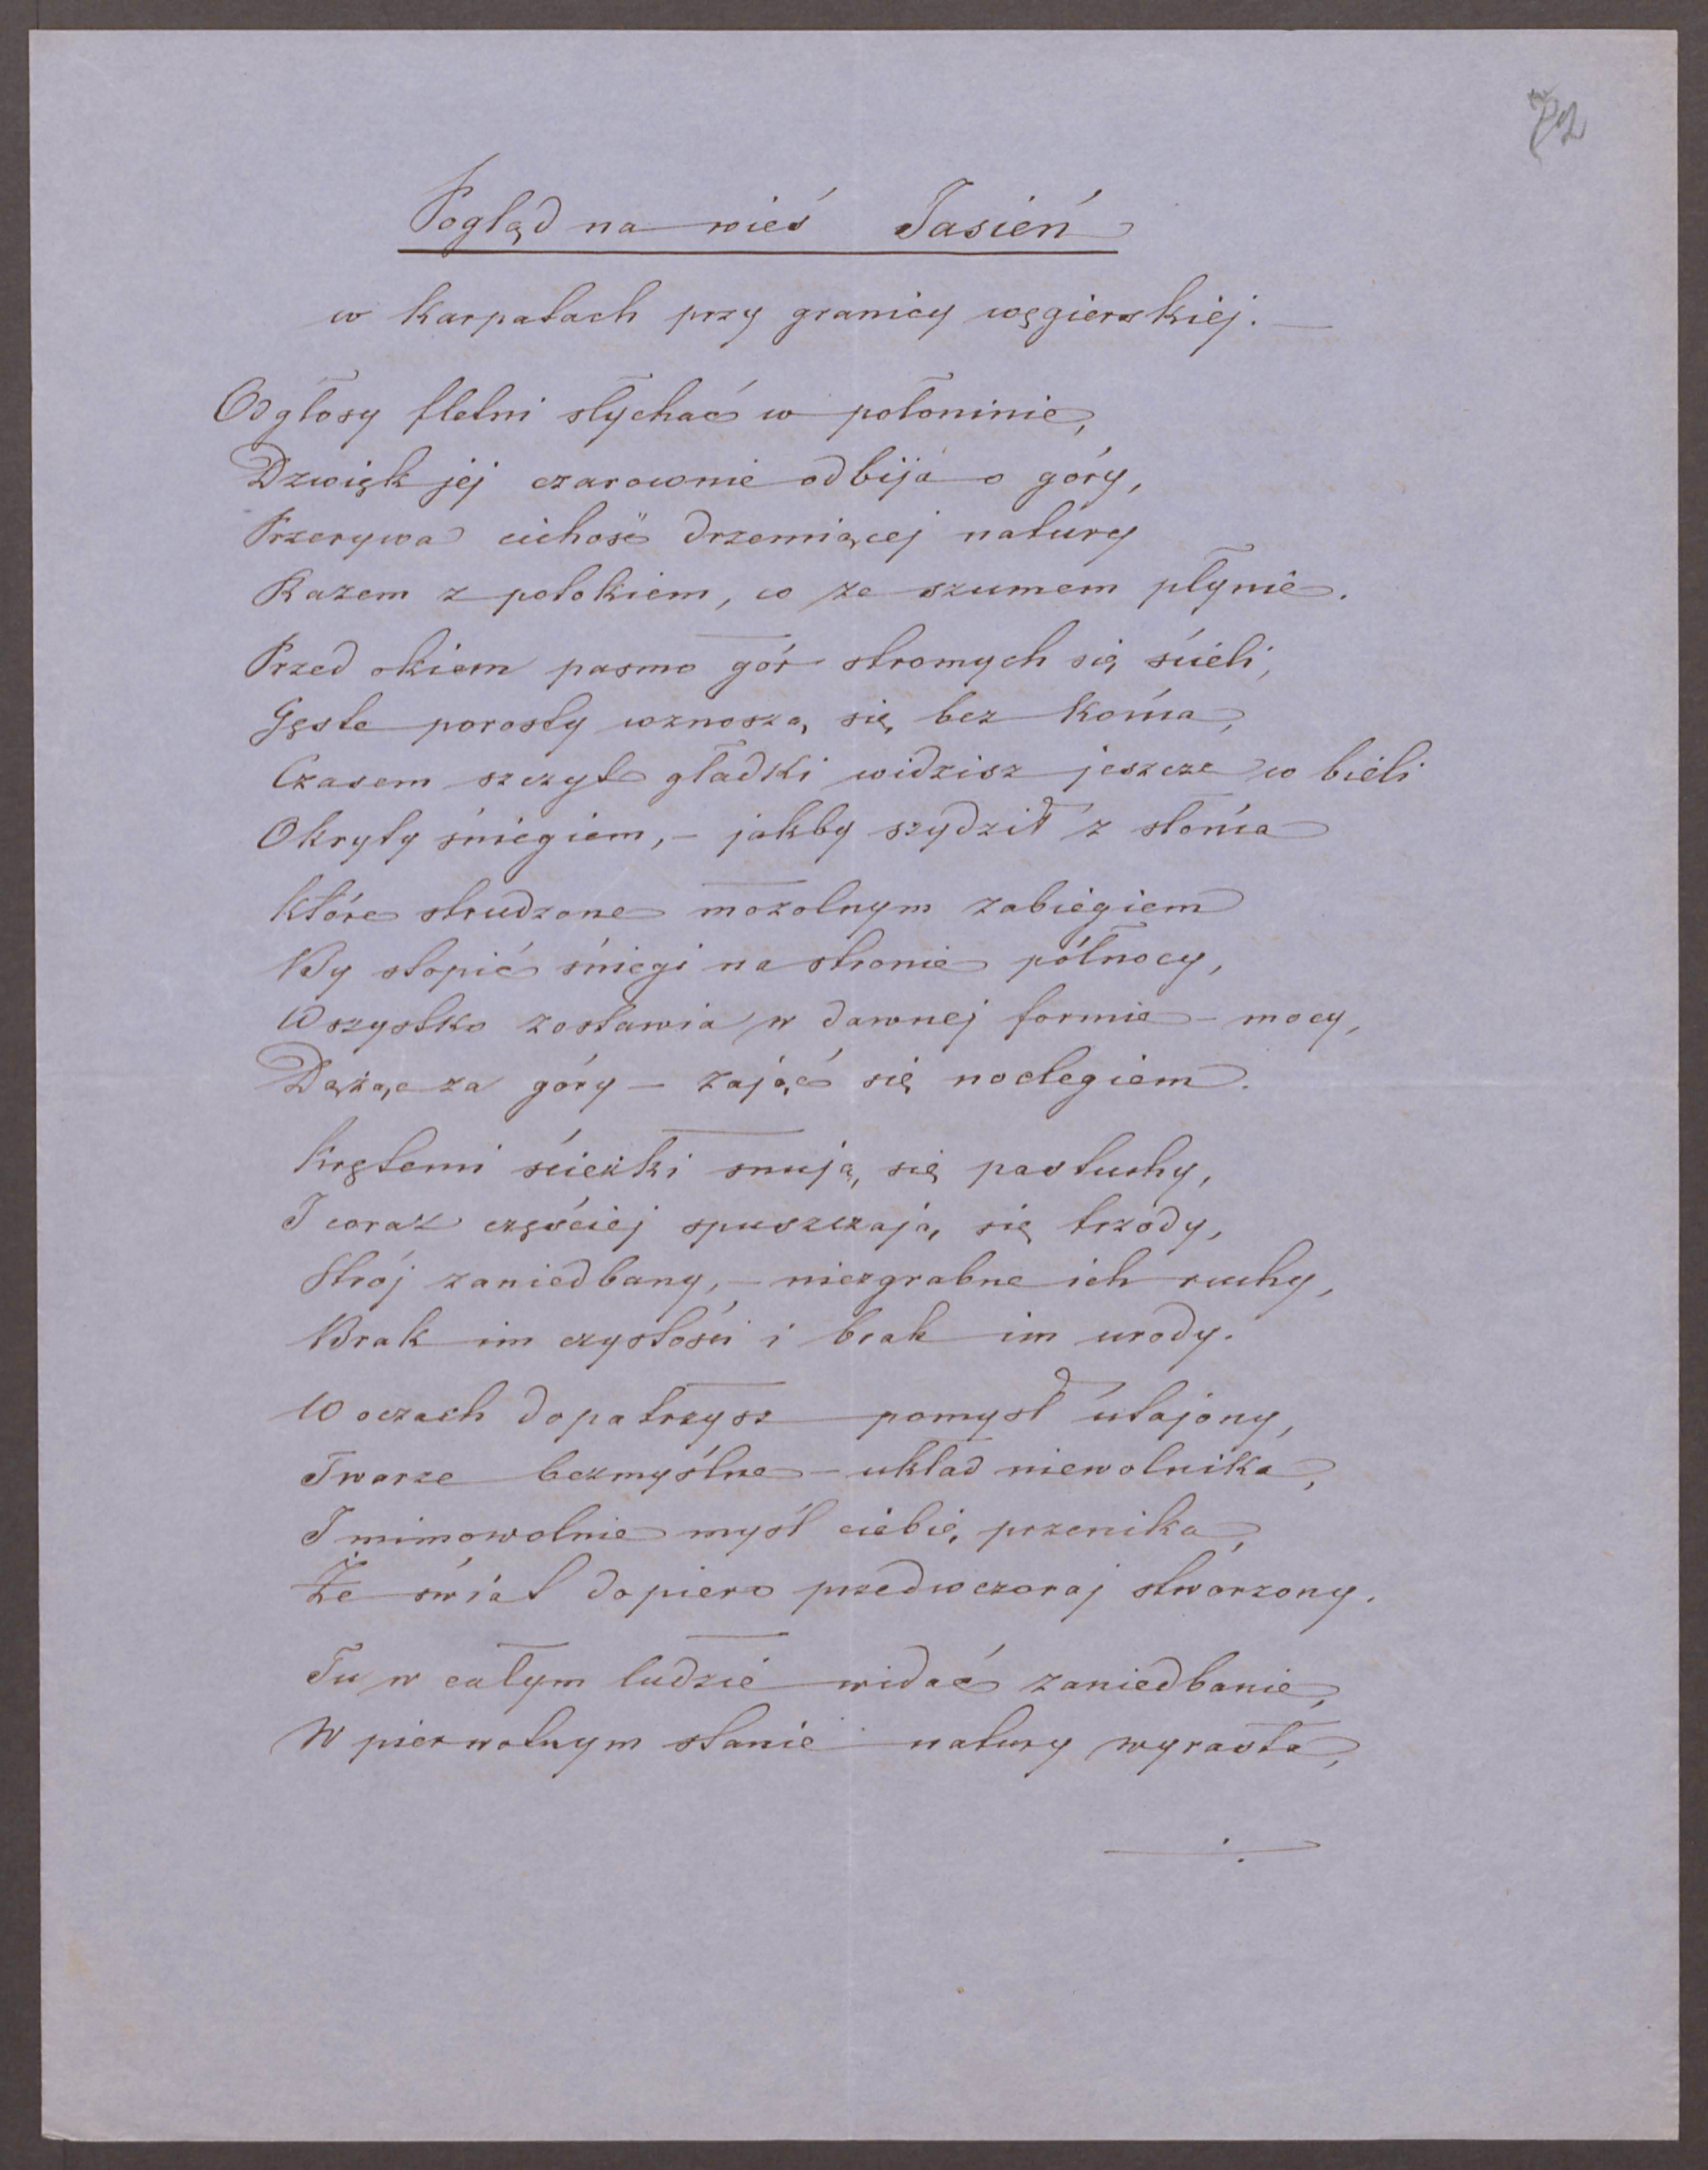 72
Pogląd na wieś Jasień
w Karpatach przy granicy węgierskiej. —
Odgłosy fletni słychać w połoninie,
Dzwięk jej czarownie odbija o góry,
Przerywa cichość drzemiącej natury
Razem z potokiem, co ze szumem płynie.
Przed okiem pasmo gór stromych się ścieli,
Gęste porosty wznoszą się bez końca,
Czasem szczyt gładki widzisz jeszcze w bieli
Okryty śniegiem, – jakby szydził z słońca
Które strudzone mozolnym zabiegiem
By stopić śniegi na stronie północy,
Wszystko zostawia w dawnej formie – mocy,
Dążąc za góry – zająć się noclegiem.
Krętemi ścieżki snują się pastuchy,
I coraz częściej spuszczają się trzody,
Strój zaniedbany, – niezgrabne ich ruchy,
Brak im czystości i brak im urody.
W oczach dopatrzysz pomysł utajony,
Twarze bezmyślne – układ niewolnika,
I mimowolnie myśl ciebie przenika,
Że świat dopiero przedwczoraj stworzony.
Tu w całym ludzie widać zaniedbanie,
W pierwotnym stanie natury wyrasta,